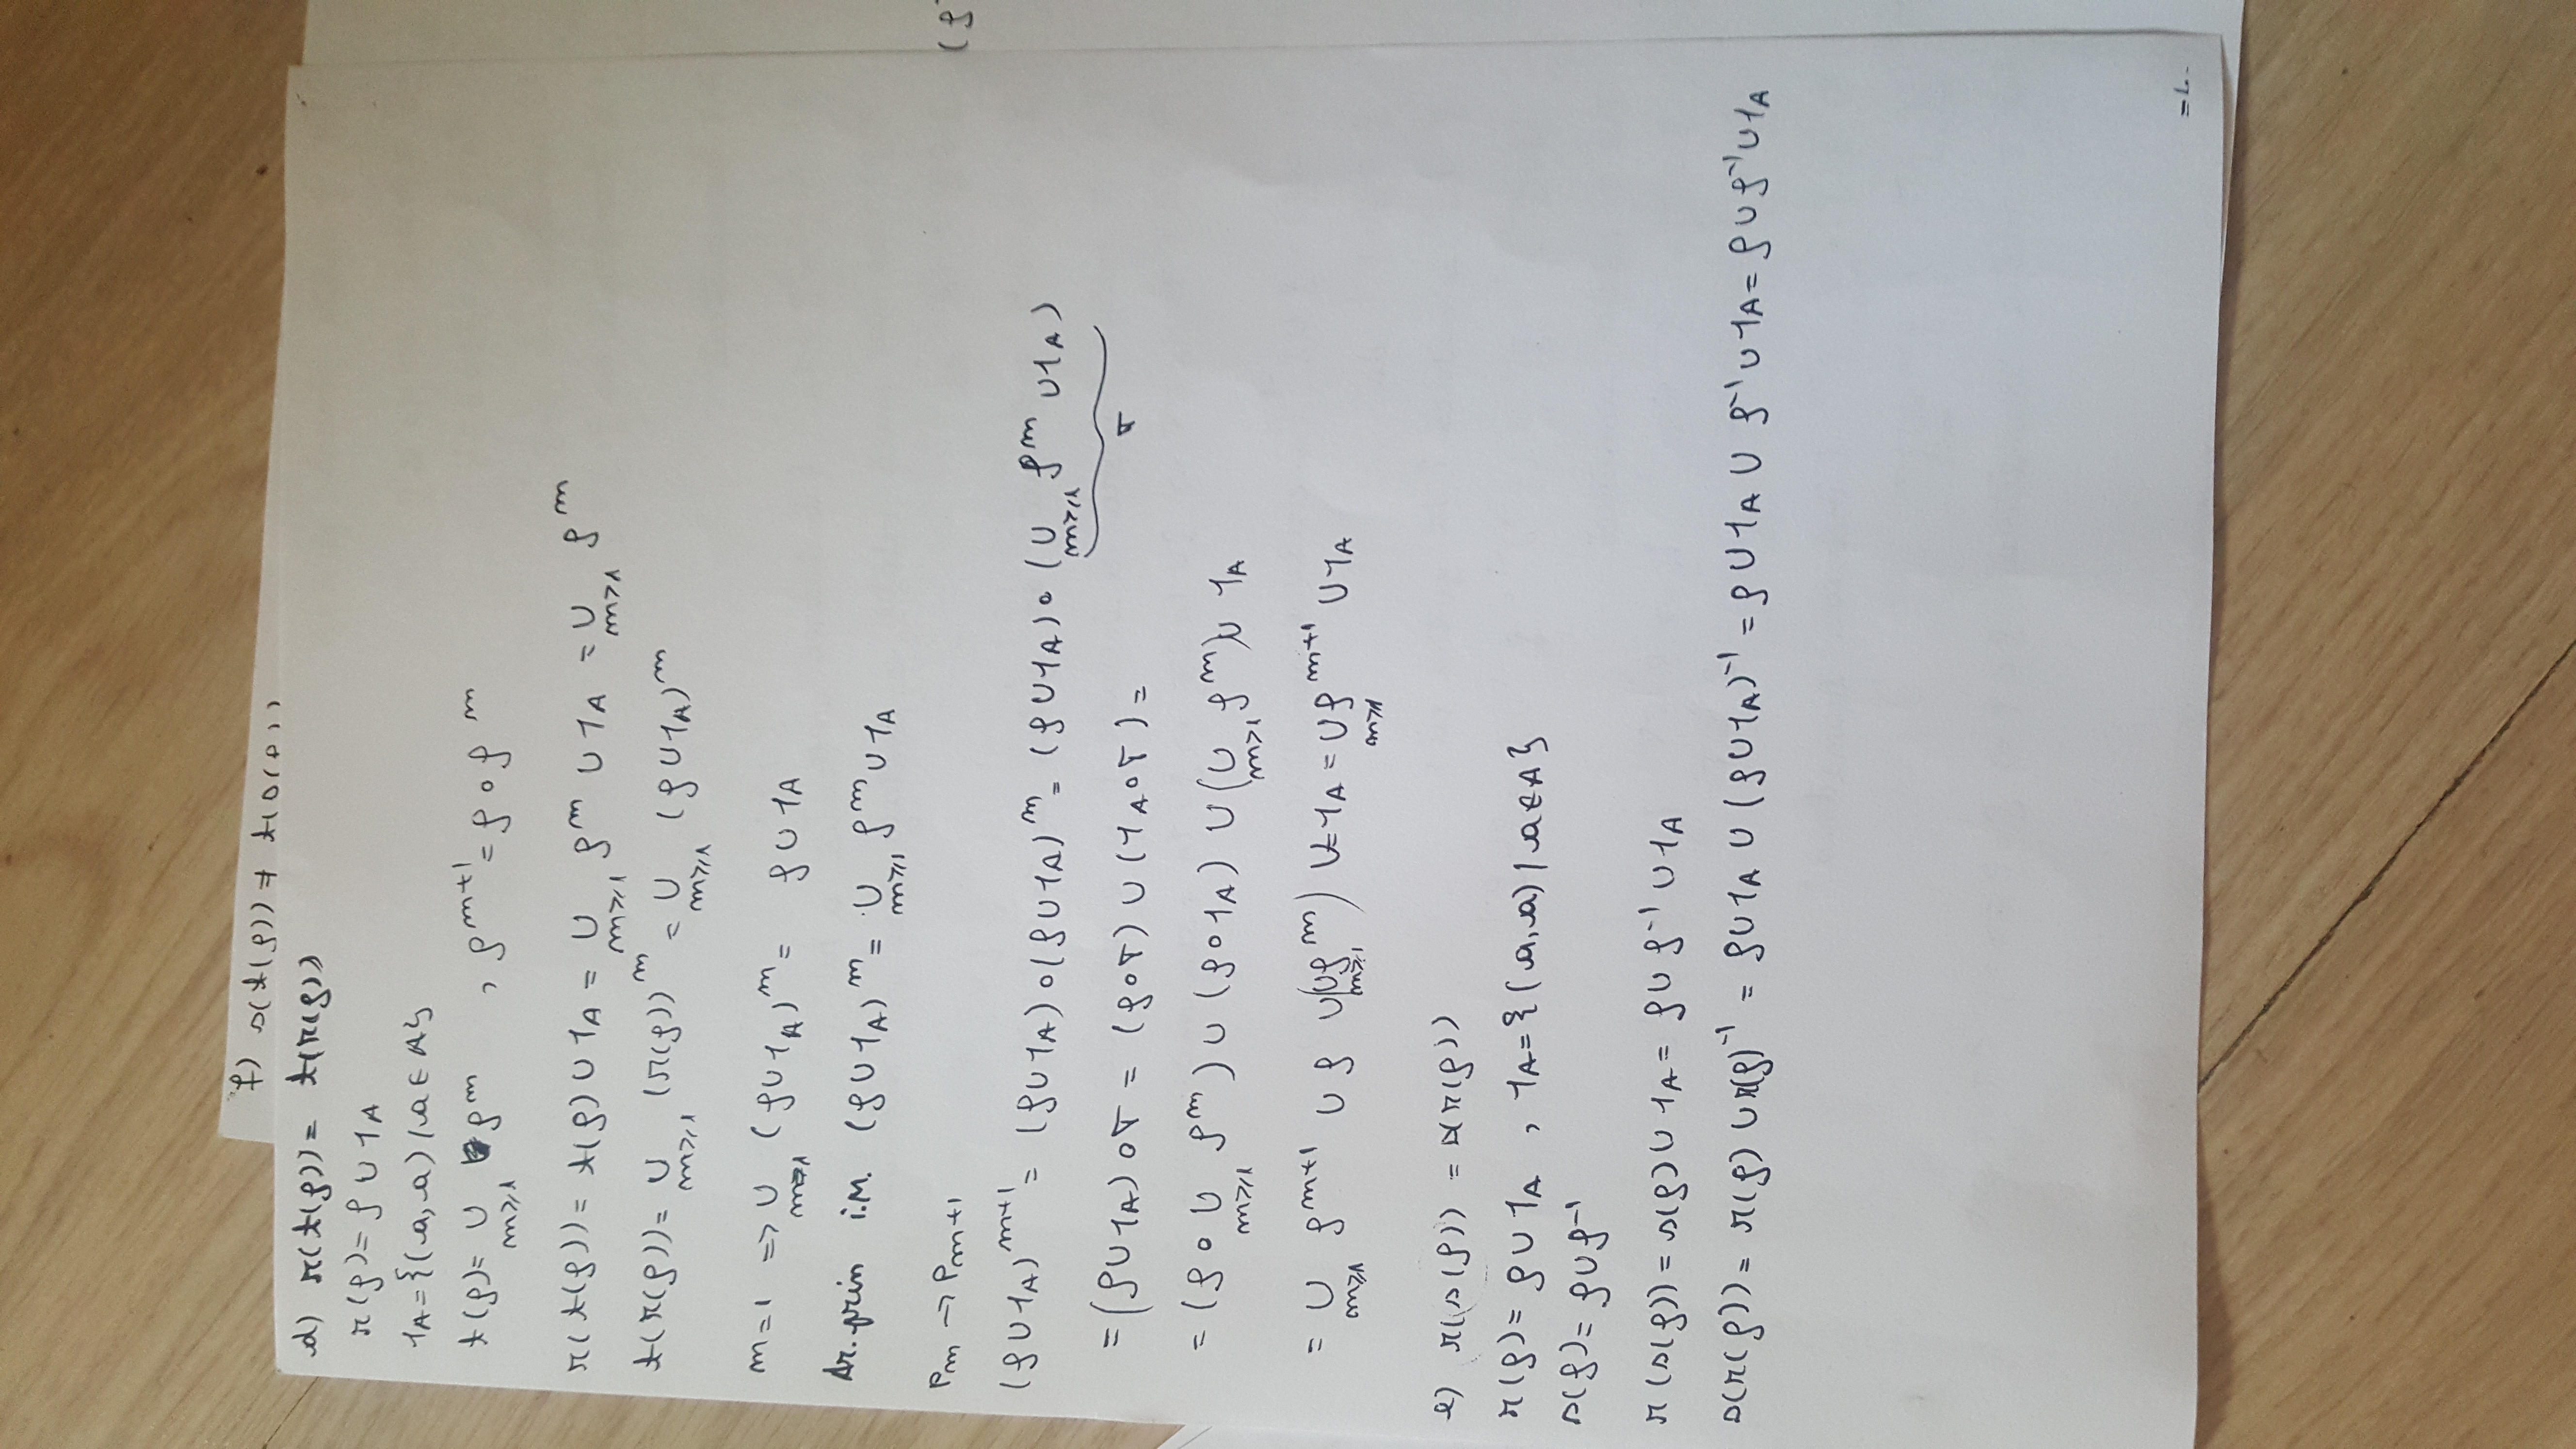 f) s(t(ρ)) ≠ t(s(ρ))
d) r(t(ρ)) = t(r(ρ))
r(ρ) = ρ ∪ 1_A
1_A = {(a, a) / a ∈ A}
t(ρ) = ∪_{m≥1} ρ^m , ρ^{m+1} = ρ ∘ ρ^m
r(t(ρ)) = t(ρ) ∪ 1_A = ∪_{m≥1} ρ^m ∪ 1_A = ∪_{m≥1} ρ^m
t(r(ρ)) = ∪_{m≥1} (r(ρ))^m = ∪_{m≥1} (ρ ∪ 1_A)^m
m=1 => ∪_{m≥1} (ρ ∪ 1_A)^m = ρ ∪ 1_A
Ar. prin i.M. (ρ ∪ 1_A)^m = ∪_{m≥1} ρ^m ∪ 1_A
P_m → P_{m+1}
(ρ ∪ 1_A)^{m+1} = (ρ ∪ 1_A) ∘ (ρ ∪ 1_A)^m = (ρ ∪ 1_A) ∘ (∪_{m≥1} ρ^m ∪ 1_A)
= (ρ ∪ 1_A) ∘ σ = (ρ ∘ σ) ∪ (1_A ∘ σ) =
σ
= (ρ ∘ ∪_{m≥1} ρ^m) ∪ (ρ ∘ 1_A) ∪ (∪_{m≥1} ρ^m) ∪ 1_A
= ∪_{m≥1} ρ^{m+1} ∪ ρ ∪ (∪_{m≥1} ρ^m) ∪ 1_A = ∪_{m≥1} ρ^{m+1} ∪ 1_A
e) r(s(ρ)) = s(r(ρ))
r(ρ) = ρ ∪ 1_A , 1_A = {(a, a) / a ∈ A}
s(ρ) = ρ ∪ ρ^{-1}
r(s(ρ)) = s(ρ) ∪ 1_A = ρ ∪ ρ^{-1} ∪ 1_A
s(r(ρ)) = r(ρ) ∪ r(ρ)^{-1} = ρ ∪ 1_A ∪ (ρ ∪ 1_A)^{-1} = ρ ∪ 1_A ∪ ρ^{-1} ∪ 1_A = ρ ∪ ρ^{-1} ∪ 1_A